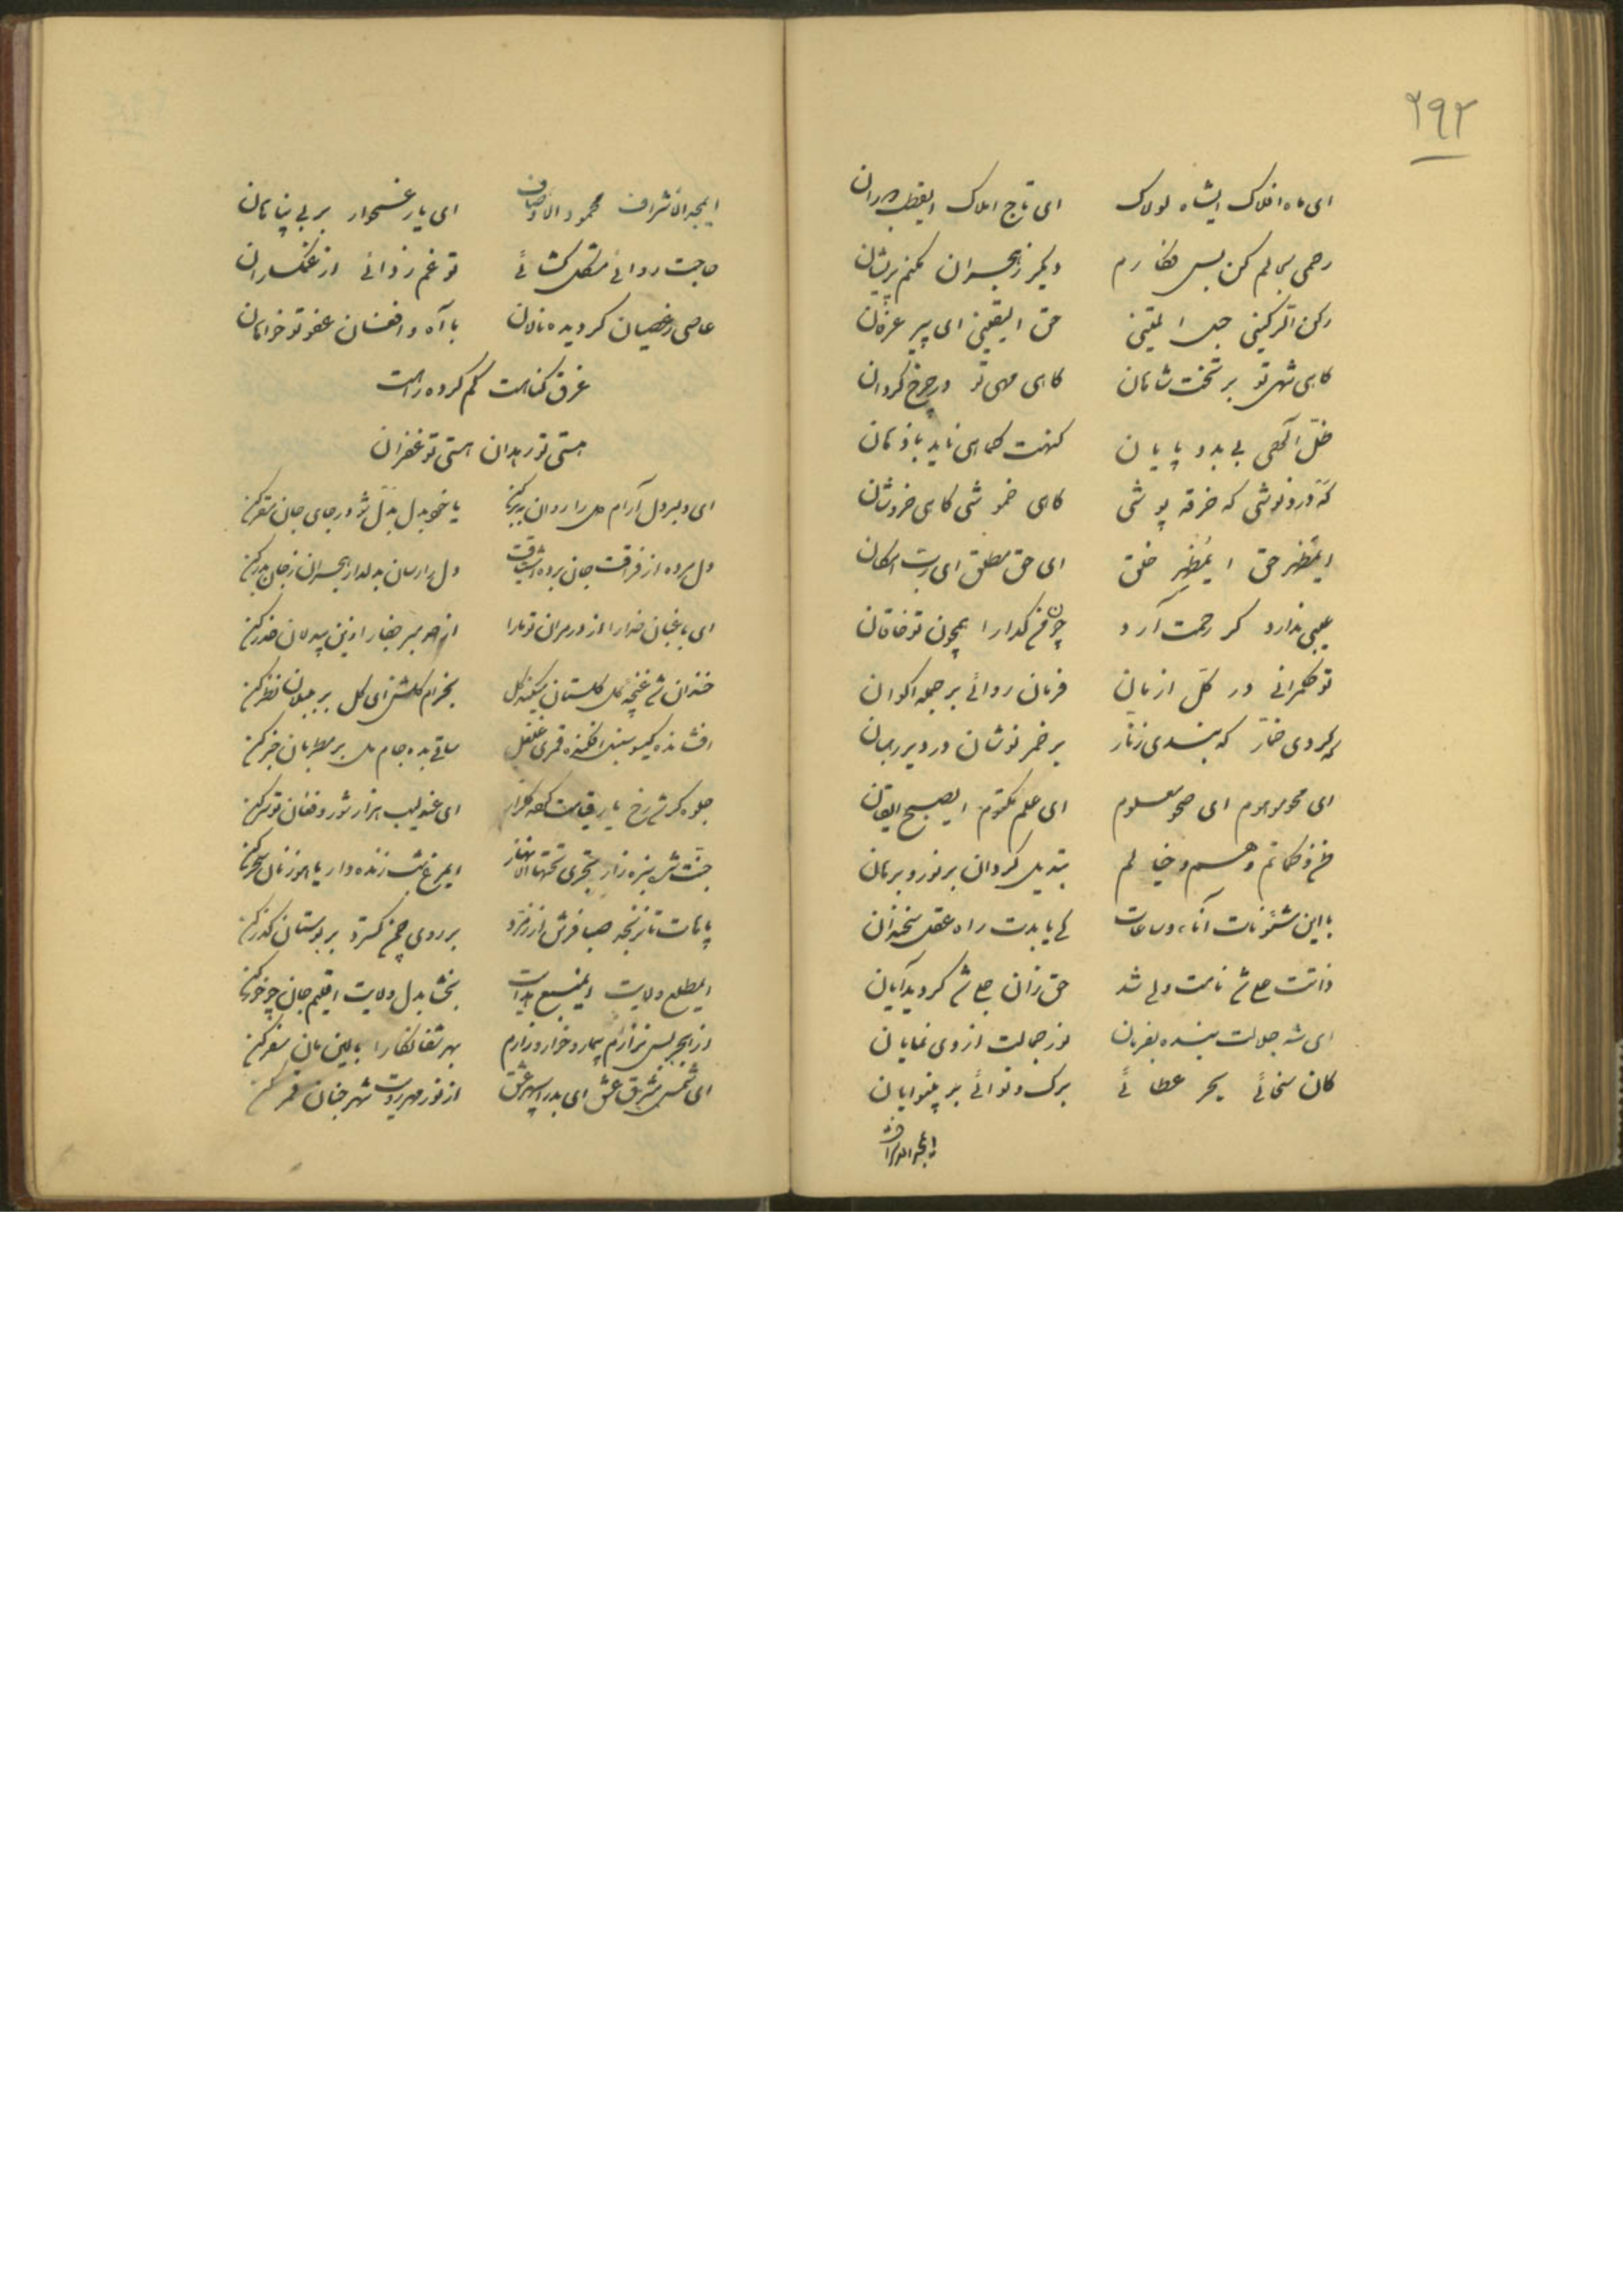 ۲۹۲
ای ماه افلاک ایشاه لولاک ای تاج املاک ایقطب دوران
رحمی بحالم کن بس فکارم دیگر ز هجران مکنم پریشان
رکن الرکینی حبل المتینی حق الیقینی ای پیر عرفان
گاهی شهی تو بر تخت شاهان گاهی مهی تو در چرخ گردان
ظل الهی بی بد و پایان کنهت کماهی ناید باذهان
گه دردنوشی گه خرقه پوشی گاهی خموشی گاهی خروشان
ایمظهر حق ایمظهر خلق ای حق مطلق ای رب امکان
عیبی ندارد گر رحمت آرد چون من گدا را همچون تو خاقان
تو حکمرانی در کل ازمان فرمان روائی بر جمله اکوان
گه گردی خمار گه بندی زنار بر خمر نوشان در دیر رهبان
ای محو موهوم ای صحو معلوم ای علم مکتوم ایصبح ایقان
وهم و خیالم تبدیل گردان بر نور و برهان
با این شئونات آناء و ساعات کی یابدت راه عقل سخندان
ذاتت علی شد نامت ولی شد حق زان علی شد گردید آبان
ای شه جلالت بنده بفرمان نور جمالت از وی نمایان
کان سخائی بحر عطائی برگ و نوائی بر بینوایان
ایمجد الاشراف
ایمجد الاشراف محمود الاوصاف ای یار غمخوار بر بی پناهان
حاجت روائی مشکل گشائی تو غم زدائی از غمگساران
عاصی ز عصیان گردیده نالان با آه و افغان عفو تو خواهان
غرق گناهست گم کرده راهست
هستی تو رهدان هستی تو غفران
ای دلبر دل آرام دل را روان ببر کن یا خو بدل بدل شو در جای جان مقر کن
دل مرده از فراقت جان برده اشتیاقت دل را رسان بدلدار هجران ز جان بدر کن
ای باغبان خدا را از در مران تو ما را از حد مبر جفا را زین بیدلان حذر کن
خندان شد غنچه گل گلستان گل بخرام گلشن ای گل بر بلبلان نظر کن
افشانده گیسو سنبل افکنده قمری غلغل ساقی بده جام مل بر مطربان خبر کن
جلوه گر شد رخ یار گلزار ای عندلیب هزار شور و فغان تو سر کن
جنت شد سبزه زار تجری تحتها الانهار ایمرغ شب زنده دار یاهو زنان سحر کن
صبا فرش از زمرد بر روی چمن گسترد بر بوستان گذر کن
ایمطلع ولایت ایمنبع هدایت بخشا بدل ولایت اقلیم جان چو خور کن
از هجر بس نزارم بیمار و خوار و زارم بهر شفا نگارا بالین مان سفر کن
ای شمس مشرق عشق ای بدر سپهر عشق از نور مهر رویت شهر جنان قمر کن